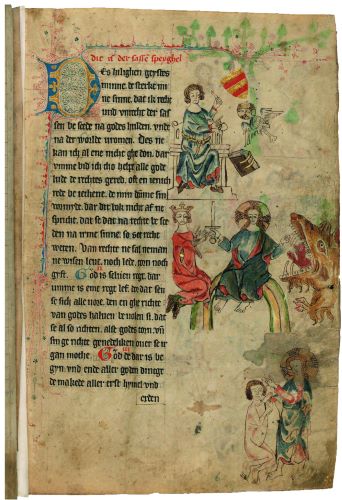 Dit is der sasse speyghel
Des hilighen geystes
minne. de sterke mi
ne sinne. dat ik recht
vnd vnrecht der sas
sen be scede na godes hulden. vnde
na der werlde vromen. Des ne
kan ich al ene nicht ghe don. dar
vmme bid ich cho helpe alle gode
lude de rechtes gered. oft en ienich
rede be iechent. de min dume sin
vormyde. dar dit bok nicht af ne
spricht. dat se dat na rechte be sce
den na irme sinne. so set recht
weten. Van rechte ne sal neman
ne wisen leue. noch lede. torn noch
gyft. God is seluen regt. dar
vmme is eme regt lef. dar sen
se sich alle vore. den en ghe richte
van godes haluen be uolen si. dat
se al so richten. alse godes torn. vn
sin ge richte genedeliken ouer se ir
gan moche. God de dar is be
gyn. vnde ende aller goden dinege
de makede aller erst hymel vnd
erden